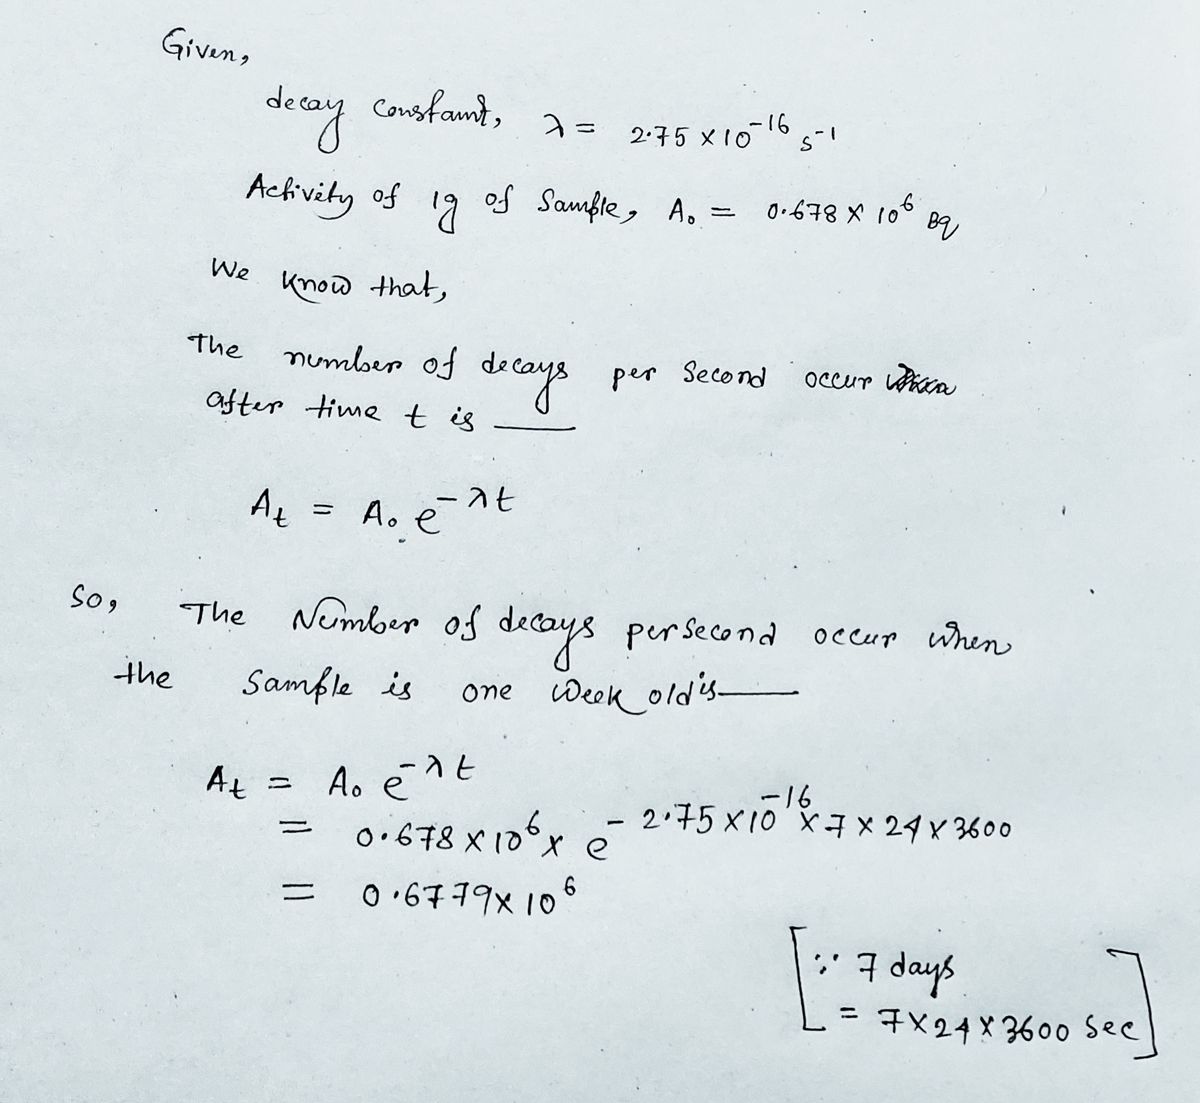 Given,
decay constant, λ = 2.75 × 10⁻¹⁶ s⁻¹
Activity of 1g of Sample, A₀ = 0.678 × 10⁶ Bq
We know that,
The number of decays per Second occur
after time t is —
Aₜ = A₀ e^(-λt)
So, The Number of decays per second occur when
the Sample is one week old is —
Aₜ = A₀ e^(-λt)
= 0.678 × 10⁶ × e^(-2.75 × 10⁻¹⁶ × 7 × 24 × 3600)
= 0.6779 × 10⁶
[∵ 7 days
= 7 × 24 × 3600 Sec]